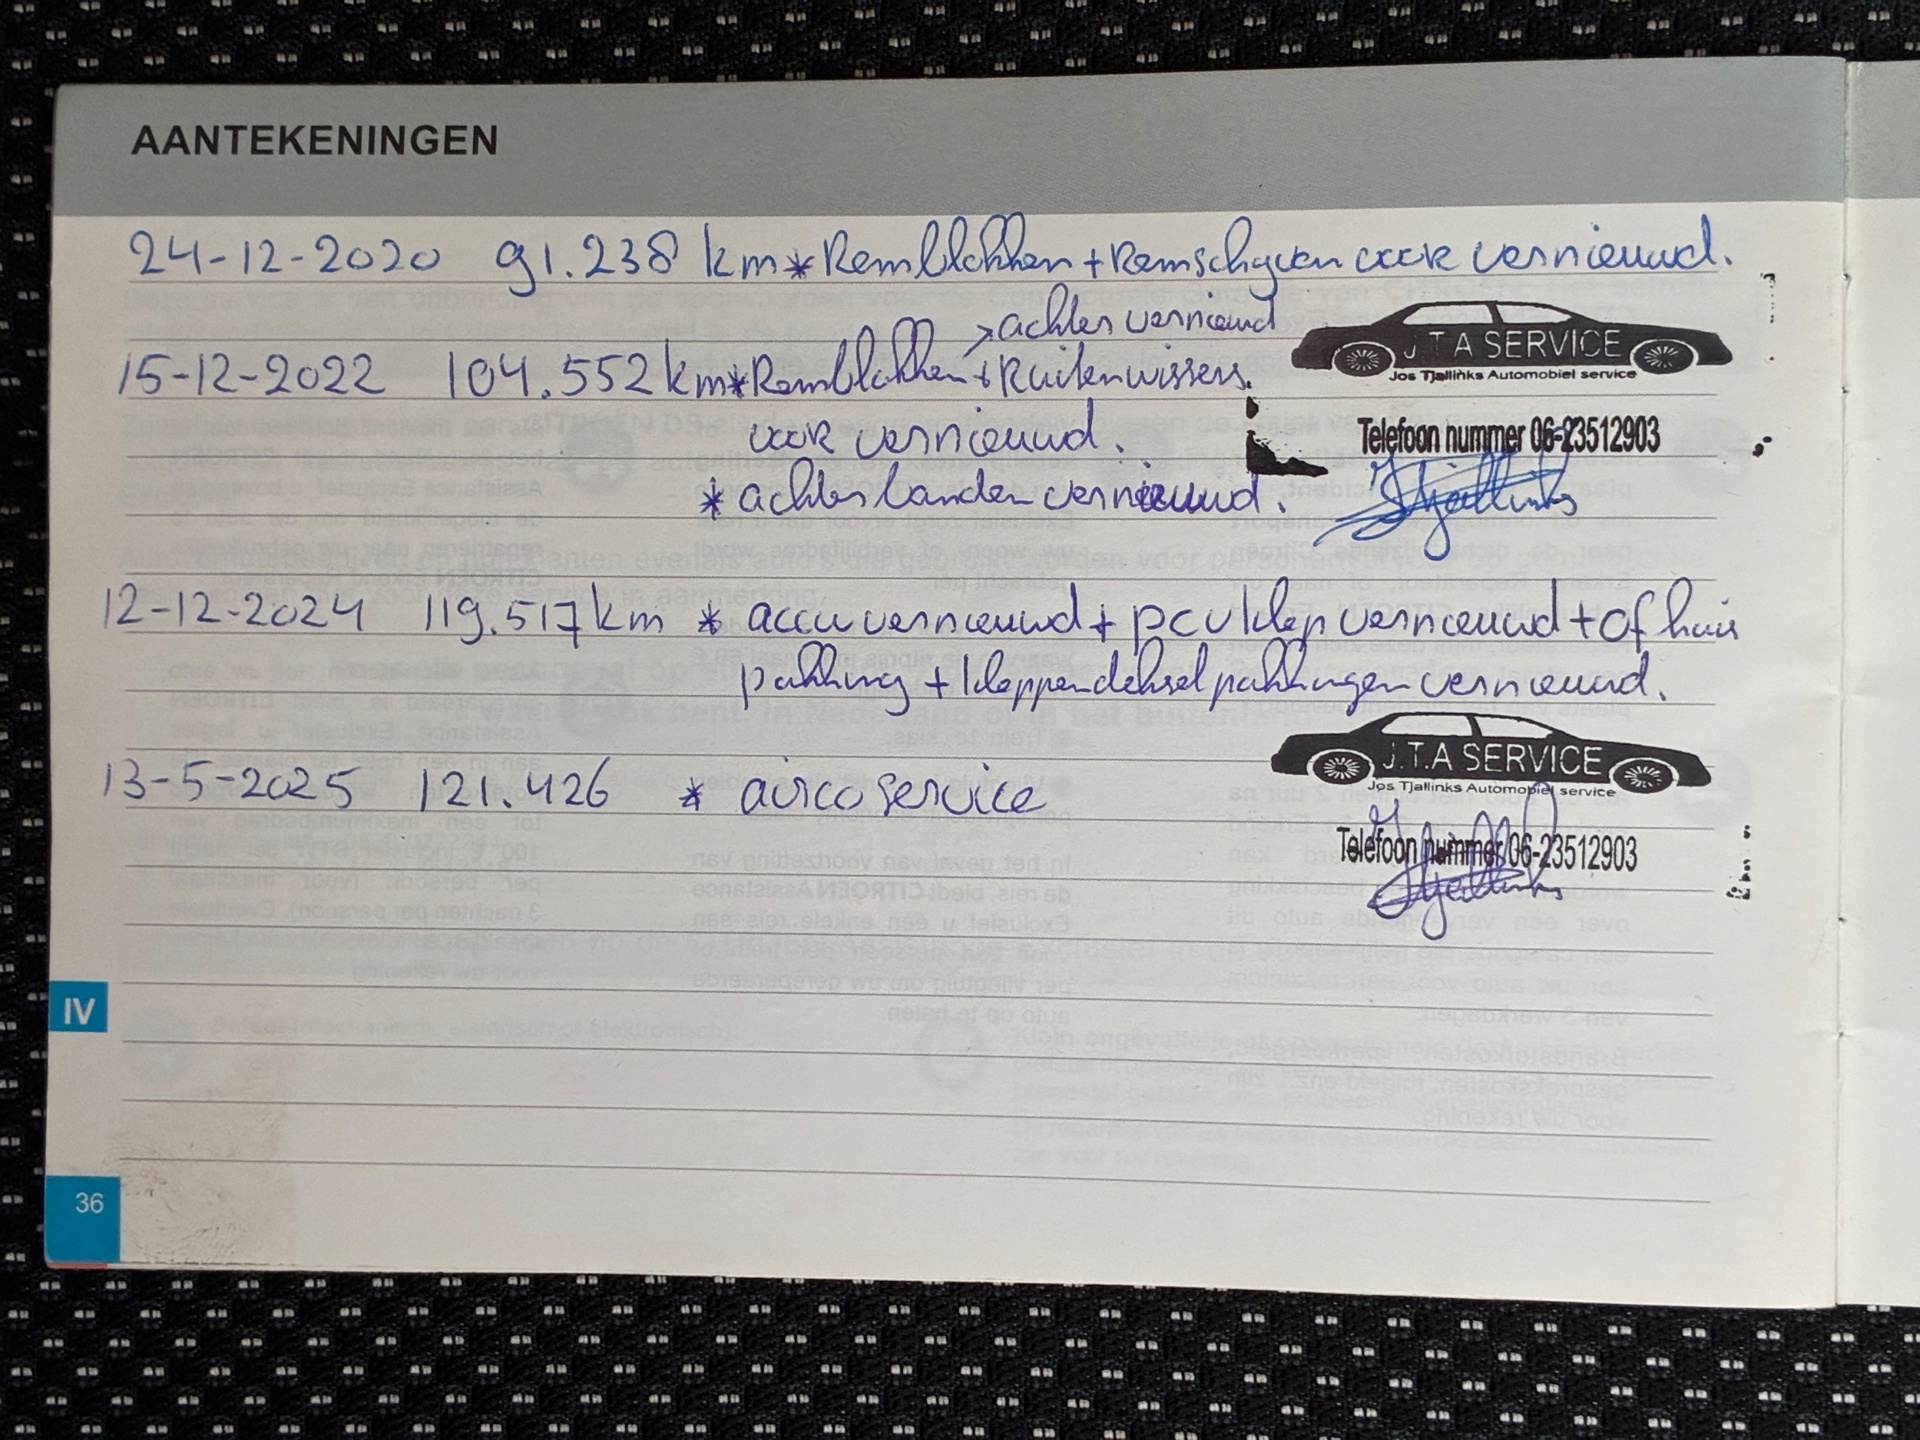 AANTEKENINGEN
24-12-2020 91.238 km * Remblokken + Remschyven voor vernieuwd.
→ achter vernieuwd
15-12-2022 104.552 km * Remblokken + Ruitenwissers.
voor vernieuwd.
* achterbanden vernieuwd.
J.T.A SERVICE
Jos Tjallinks Automobiel service
Telefoon nummer 06-23512903
12-12-2024 119.517 km * accu vernieuwd + pcv klep vernieuwd + of huis
pakking + kleppendeksel pakkingen vernieuwd.
J.T.A SERVICE
Jos Tjallinks Automobiel service
13-5-2025 121.426 * airco service
Telefoon nummer 06-23512903
IV
36